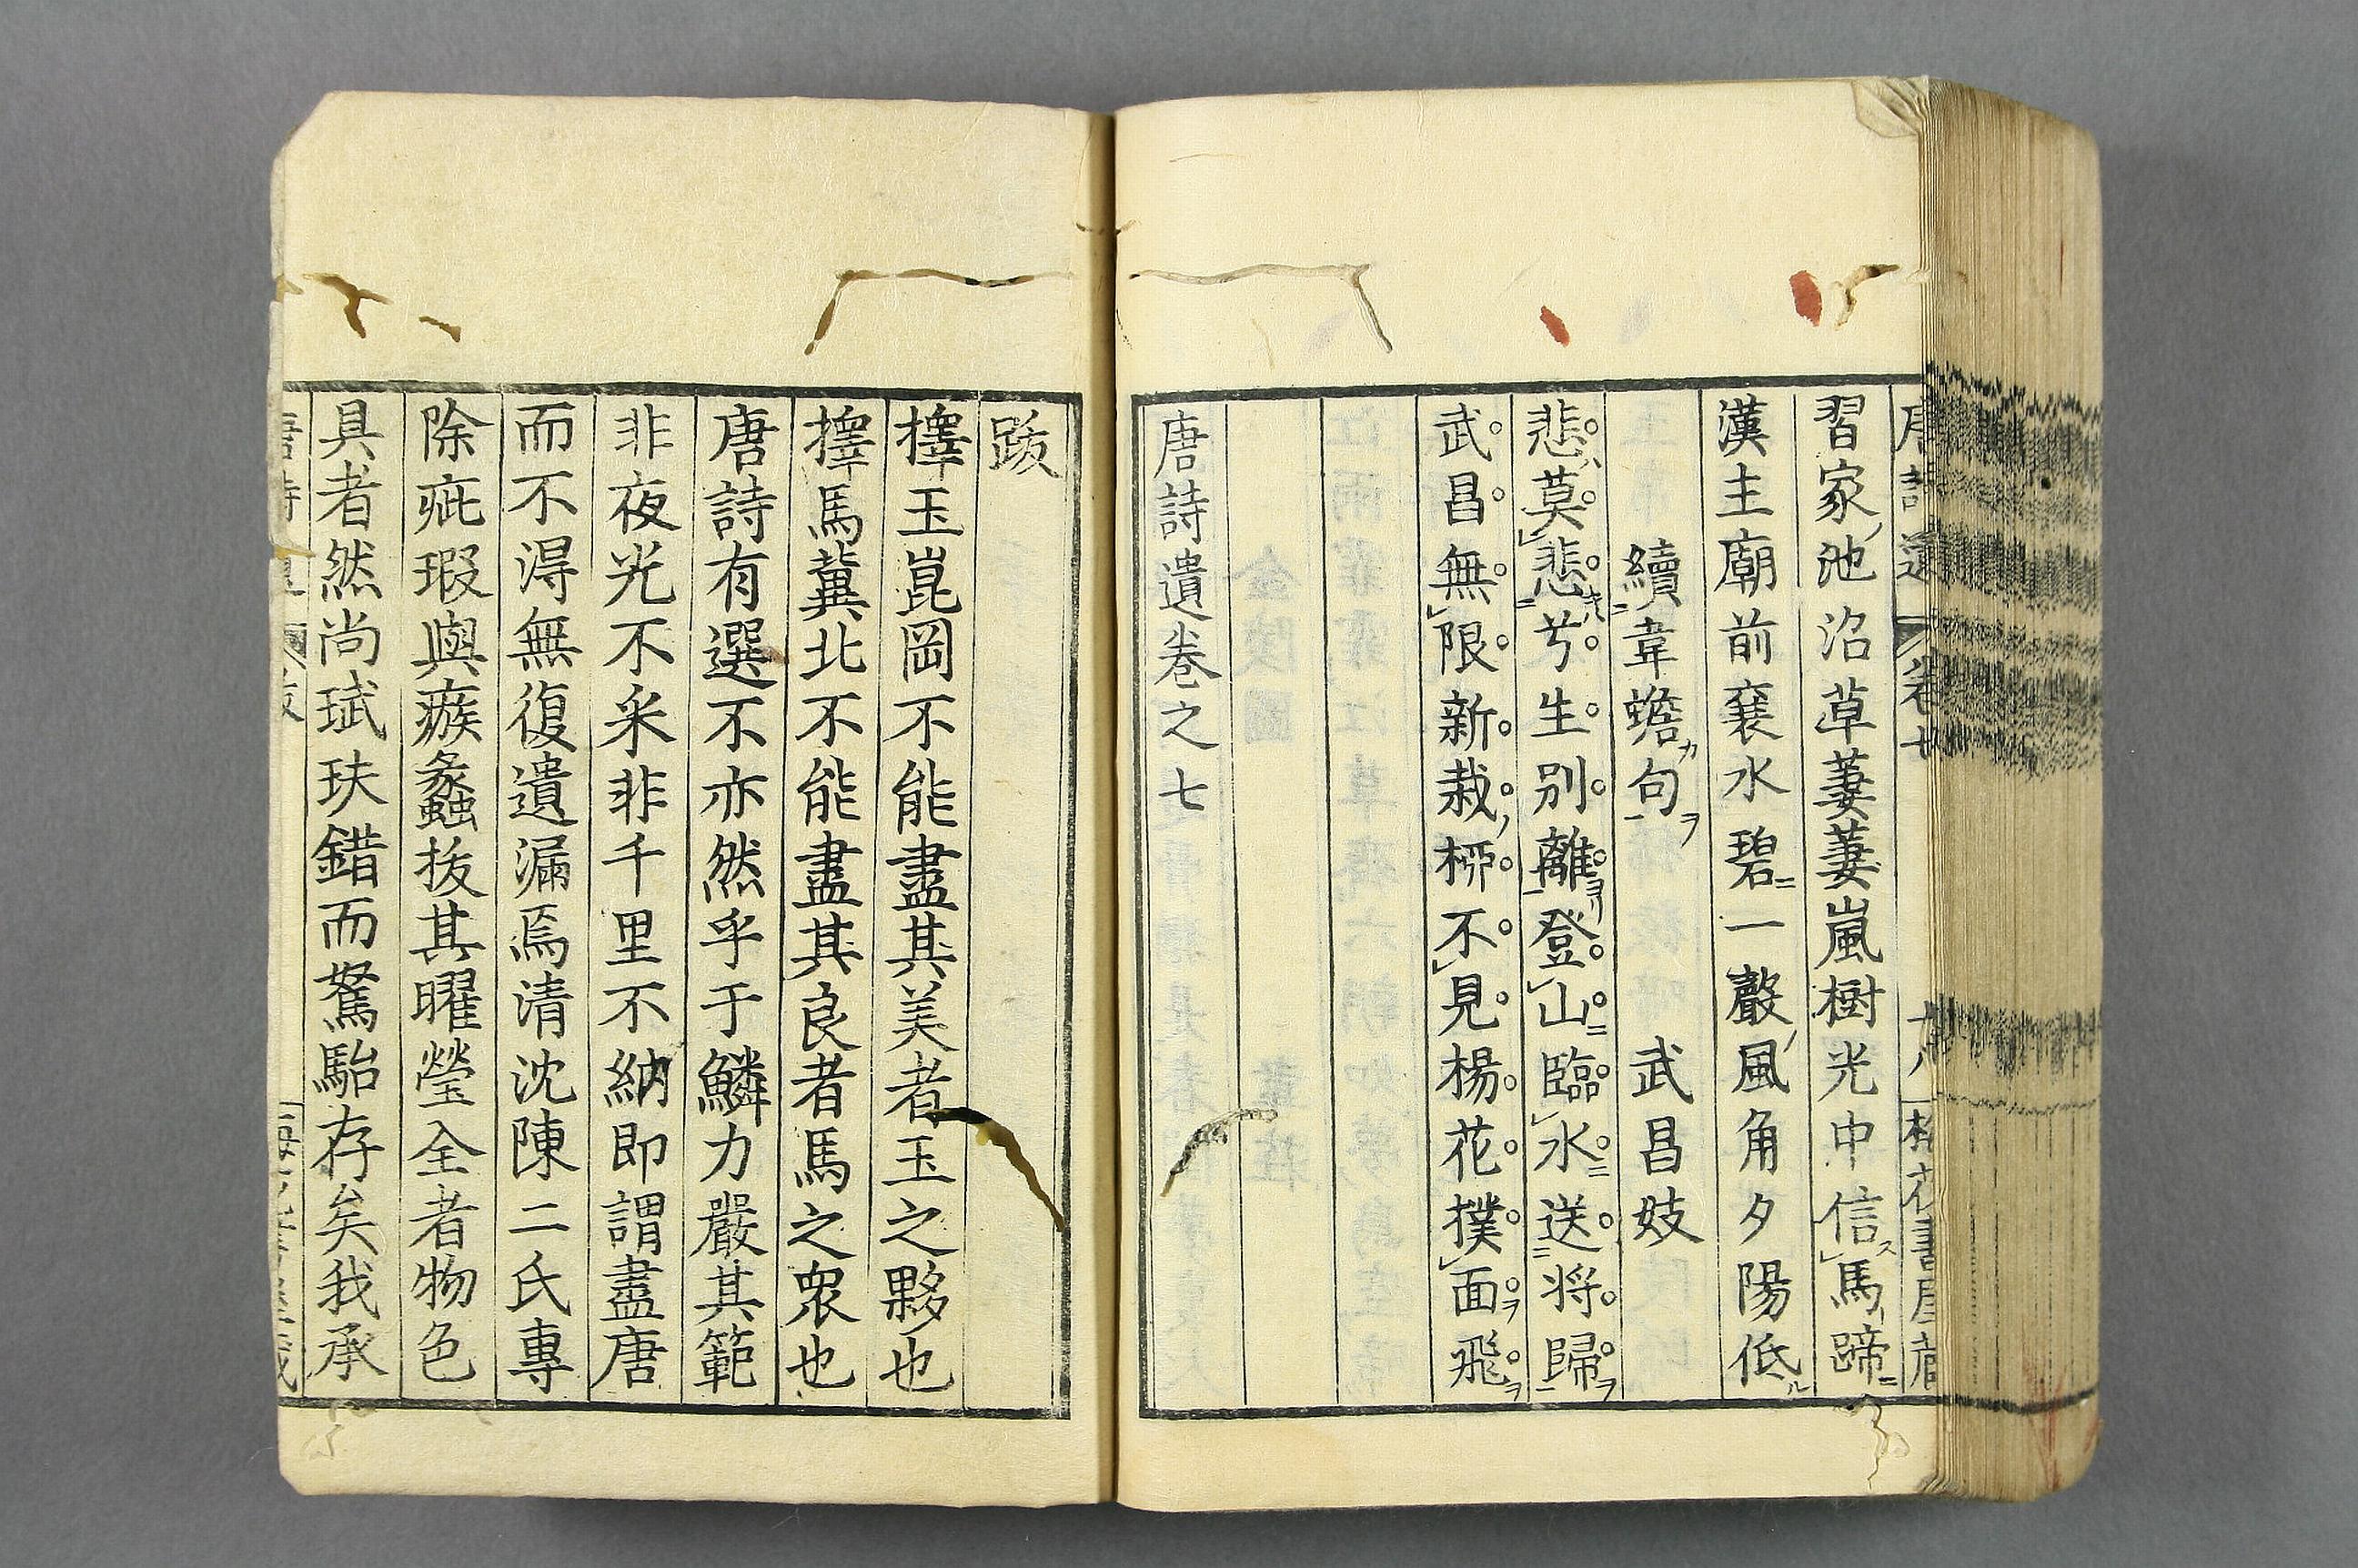 習家池沼草萋萋嵐樹光中信馬蹄
漢主廟前襄水碧一聲風角夕陽低
續韋蟾句 武昌妓
悲莫悲兮生別離登山臨水送将歸
武昌無限新栽桺不見楊花撲面飛
唐詩遺巻之七
跋
擇玉崑岡不能盡其美者玉之夥也
擇馬冀北不能盡其良者馬之衆也
唐詩有選不亦然乎于鱗力嚴其範
非夜光不采非千里不納即謂盡唐
而不得無復遺漏焉清沈陳二氏專
除疵瑕與瘯蠡拔其曜瑩全者物色
具者然尚珷玞錯而駑駘存矣我承